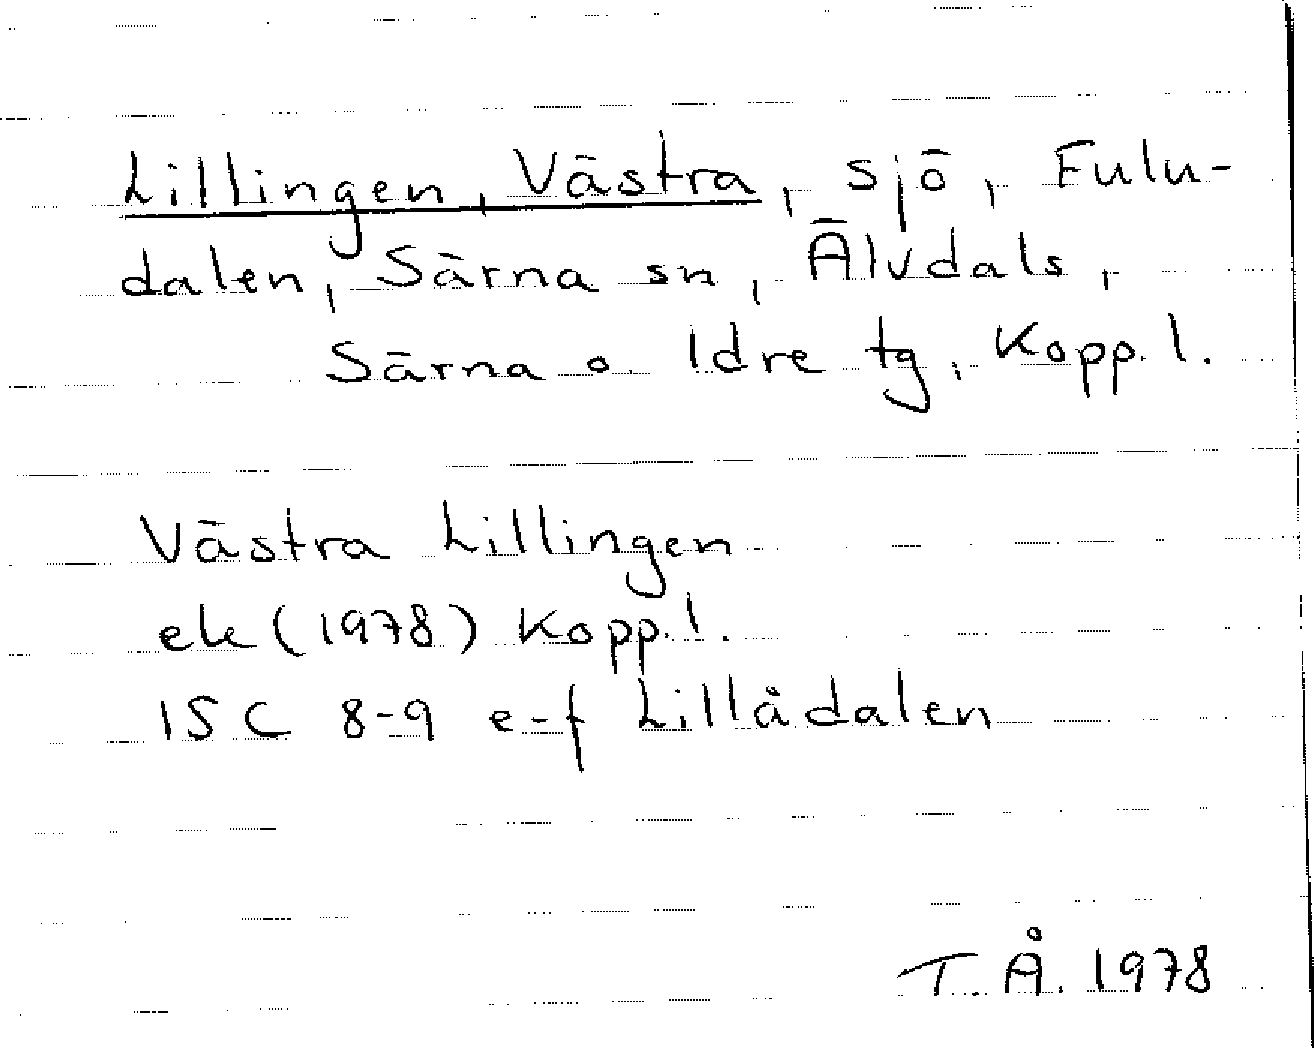 Lillingen, Västra, sjö, Fulu-
dalen, Särna sn, Älvdals,
Särna o. Idre tg, Kopp. l.
Västra Lillingen
ek (1978) Kopp. l.
15C 8-9 e-f Lillådalen
T.Å. 1978